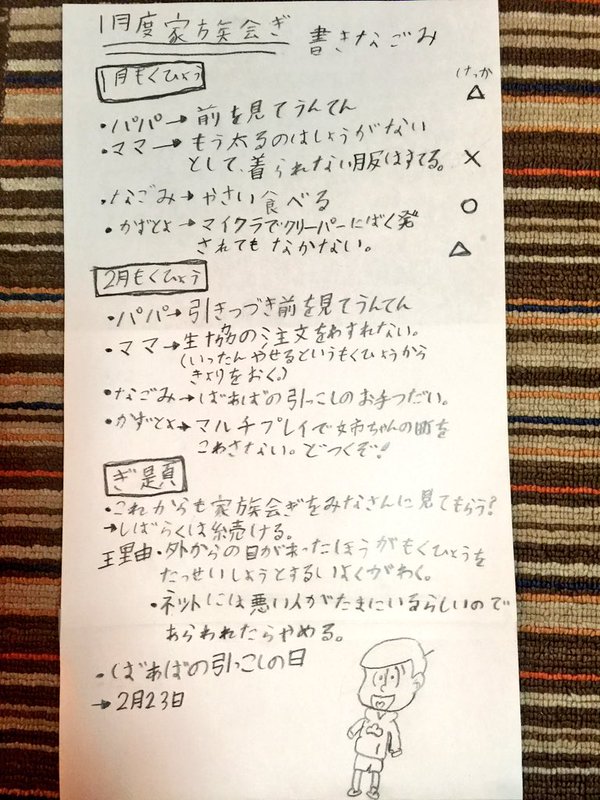 1月度家族会ぎ 書きなごみ
けっか
1月もくひょう
・パパ→前を見てうんてん △
・ママ→もう太るのはしょうがない
として、着られない服はすてる。 ×
・なごみ→やさい食べる ○
・かずとよ→マイクラでクリーパーにばく発
されてもなかない。 △
2月もくひょう
・パパ→引きつづき前を見てうんてん
・ママ→生協の注文をわすれない。
(いったんやせるというもくひょうから
きょりをおく。)
・なごみ→ばぁばの引っこしのお手つだい。
・かずとよ→マルチプレイで姉ちゃんの町を
こわさない。どつくぞ!
ぎ題
・これからも家族会ぎをみなさんに見てもらう?
→しばらくは続ける。
理由・外からの目があったほうがもくひょうを
たっせいしようとするいよくがわく。
・ネットには悪い人がたまにいるらしいので
あらわれたらやめる。
・ばぁばの引っこしの日
→2月23日